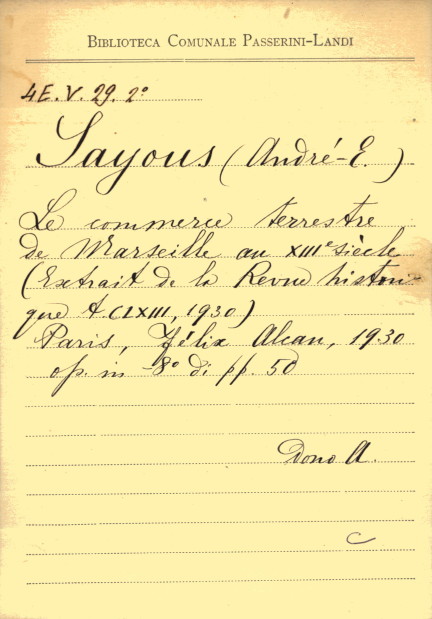 BIBLIOTECA COMUNALE PASSERINI-LANDI
4E.V.29.2°
Sayous (André-E.)
Le commerce terrestre
de Marseille au XIIIe siècle
(Extrait de la Revue histori-
que t. CLXIII, 1930)
Paris, Félix Alcan, 1930
op. in -8° di pp. 50
Dono A.
C